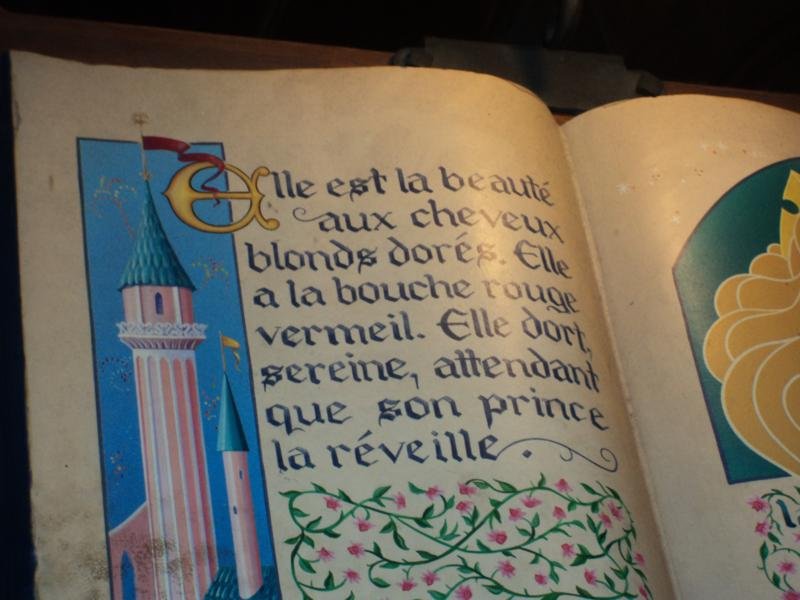 Elle est la beauté
aux cheveux
blonds dorés. Elle
a la bouche rouge
vermeil. Elle dort,
sereine, attendant
que son prince
la réveille.